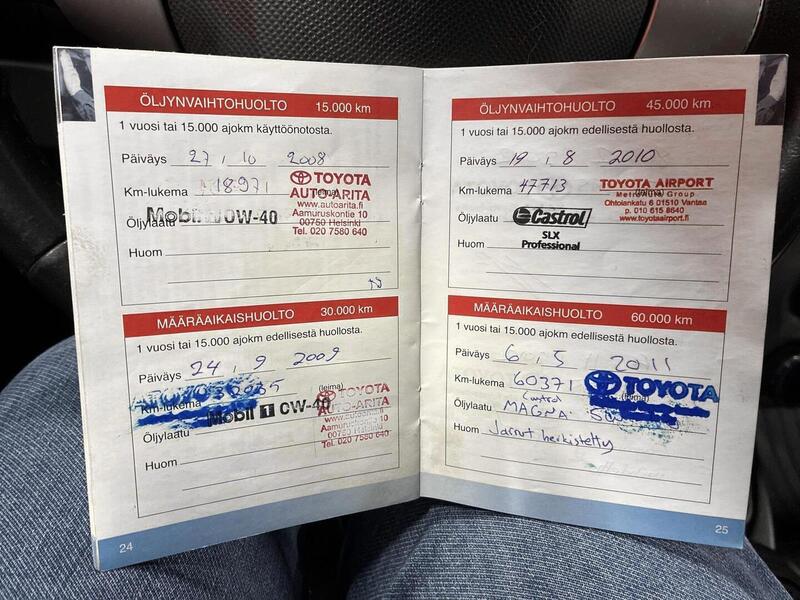 ÖLJYNVAIHTOHUOLTO 15.000 km
1 vuosi tai 15.000 ajokm käyttöönotosta.
Päiväys 27 . 10 2008
Km-lukema 18971 (leima)
TOYOTA
AUTO-ARITA
www.autoarita.fi
Aamuruskontie 10
00750 Helsinki
Tel. 020 7580 640
Öljylaatu Mobil 1 0W-40
Huom
MÄÄRÄAIKAISHUOLTO 30.000 km
1 vuosi tai 15.000 ajokm edellisestä huollosta.
Päiväys 24 . 9 2009
Km-lukema (leima)
TOYOTA
AUTO-ARITA
www.autoarita.fi
Aamuruskontie 10
00750 Helsinki
Tel. 020 7580 640
Öljylaatu Mobil 1 0W-40
Huom
24
ÖLJYNVAIHTOHUOLTO 45.000 km
1 vuosi tai 15.000 ajokm edellisestä huollosta.
Päiväys 19 . 8 2010
Km-lukema 47713 (leima)
TOYOTA AIRPORT
Metroauto Group
Ohtolankatu 6 01510 Vantaa
p. 010 615 8640
www.toyotaairport.fi
Öljylaatu Castrol
SLX
Professional
Huom
MÄÄRÄAIKAISHUOLTO 60.000 km
1 vuosi tai 15.000 ajokm edellisestä huollosta.
Päiväys 6 . 5 2011
Km-lukema 60371 (leima)
TOYOTA
Öljylaatu Castrol
MAGNA
Huom Jarrut herkistetty
25